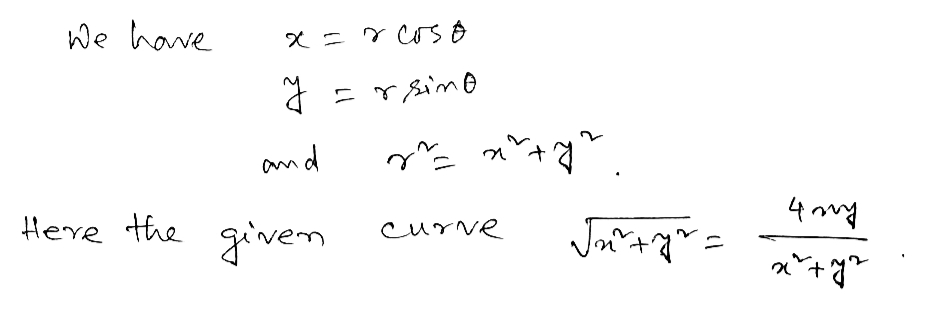 We have x = r cosθ
y = r sinθ
and r² = x² + y².
Here the given curve √(x² + y²) = 4xy / (x² + y²).